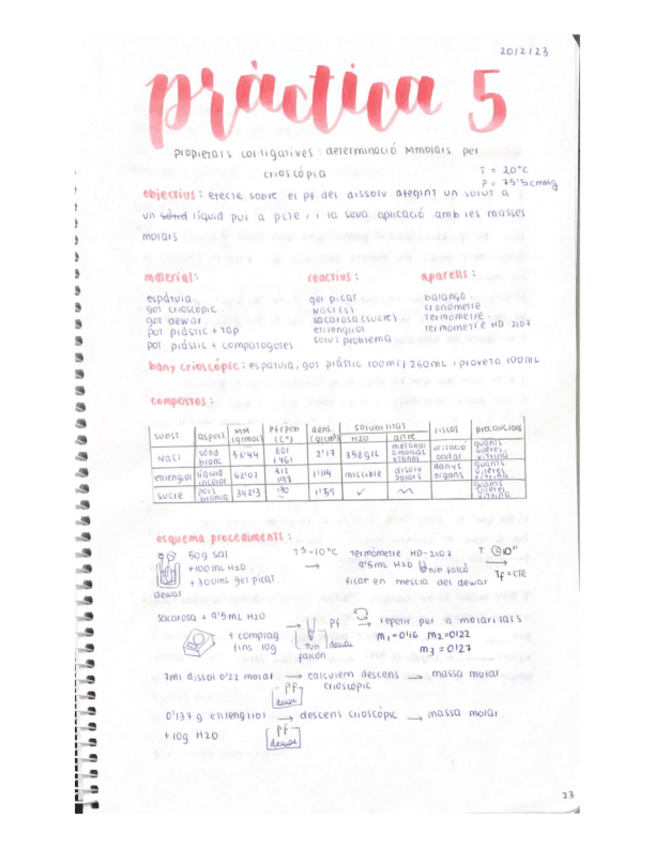 20/2/23
pràctica 5
propietats col·ligatives : determinació Mmolars per
crioscòpia
T = 20°C
P = 75'5 cmHg
objectius : efecte sobre el pf del dissolv afegint un solut a
un líquid pur a p cte i la seva aplicació amb les masses
molars.
material :
reactius :
aparells :
espàtula.
gel picat
balança.
got crioscòpic.
NaCl (s)
cronòmetre.
got dewar.
sacarosa (sucre)
termòmetre.
pot plàstic + tap
etilenglicol
termòmetre HD-2107
pot plàstic + comptagotes
solut problema
bany crioscòpic : espàtula, got plàstic 100ml / 250mL i proveta 100mL
compostos :
subst. aspect MM (g/mol) pf/peb (C°) dens (g/cm³) solubilitat H2O altre riscos precaucions
NaCl sòlid blanc 58'44 801 1461 2'17 358g/L metanol amoniac etanol irritació ocular guants ulleres vitrina
etilenglicol líquid incolor 62'07 197 miscible disolv polars danys organs guants ulleres vitrina
sucre pols blanca 342'3 1'59 ✓ guants ulleres vitrina
esquema procediments :
50g sal
+100 mL H2O.
+300mL gel picat.
dewar
T<sup>a</sup> -10°C →
termòmetre HD-2107
9'5mL H2O tub falcó
ficar en mescla del dewar
T 10''
→
Tf = cte
sacarosa + 9'5mL H2O
+ comptag
fins 10g
→ pf →
tub
falcon
dewar
repetir per a molaritats
m₁ = 0'16 m₂ = 0'22
m₃ = 0'27
7ml dissol 0'22 molal → calculem descens → massa molar.
pf crioscòpic
dewar
0'137 g etilenglicol → descens crioscòpic → massa molar
+ 10g H2O
pf
dewar
23